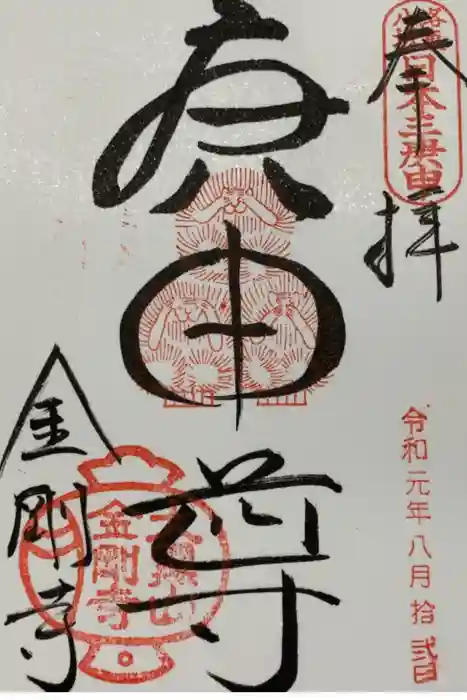 奉拝
日本三庚申
庚申尊
令和元年八月拾弐日
金剛寺
金剛寺